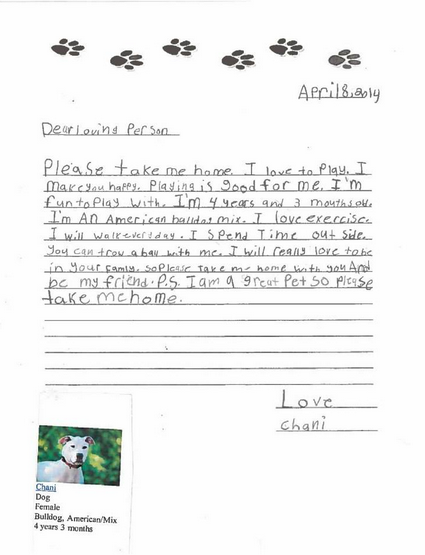 April 8, 2014
Dear Loving Person
Please take me home. I love to Play. I
make you happy. Playing is good for me. I'm
fun to Play with. I'm 4 years and 3 months old.
I'm An American balldog mix. I love exercise.
I will walk everyday. I Spend Time out side.
You can trow a ball with me. I will really love to be
in your family. so Please take me home with you And
be my friend. P.S. I am a great Pet so please
take me home.
Love
Chani
Chani
Dog
Female
Bulldog, American/Mix
4 years 3 months